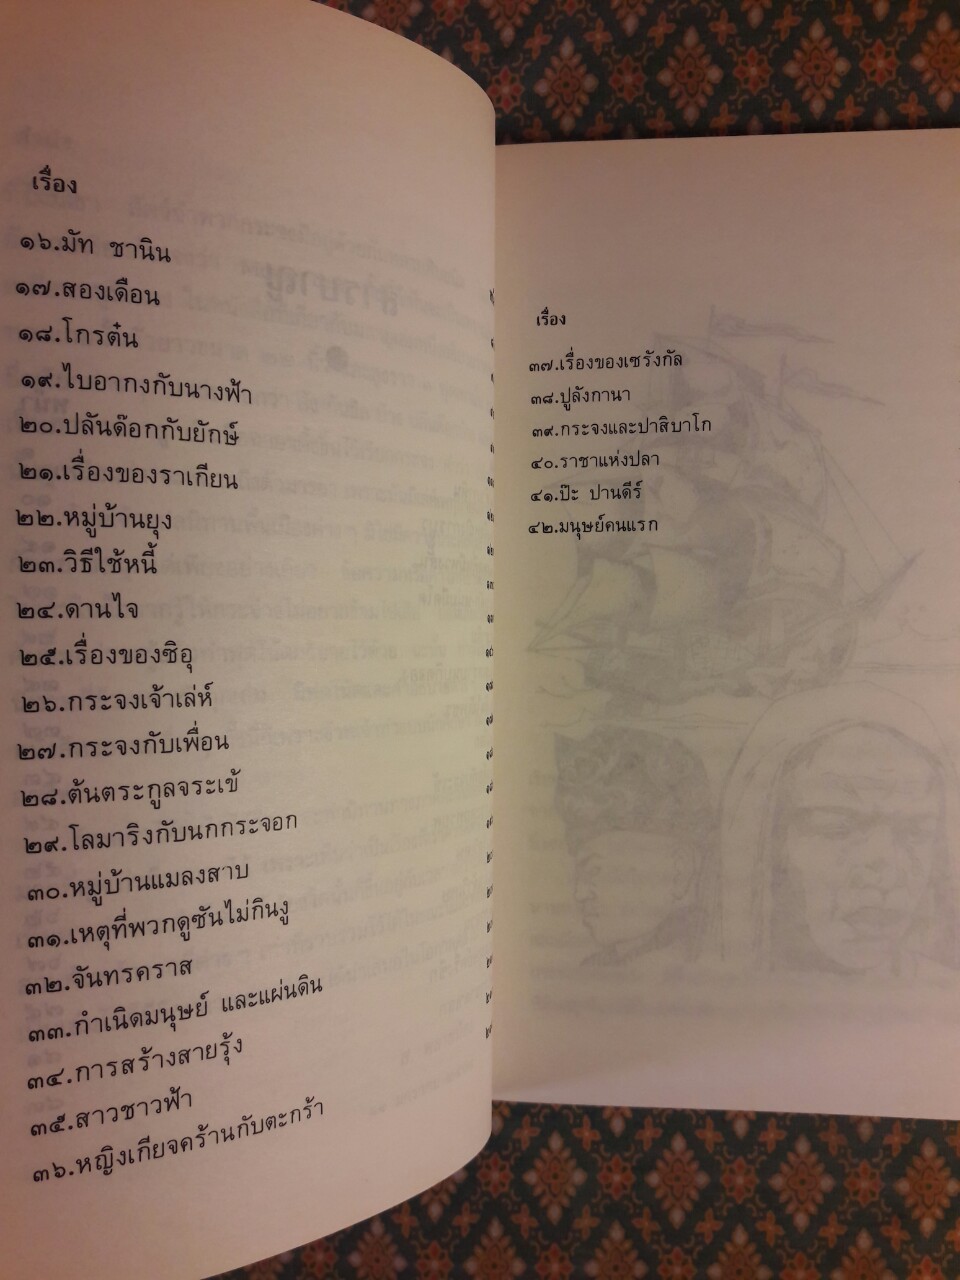 เรื่อง
๑๖.มัท ชานิน
๑๗.สองเดือน
๑๘.โกรต๋น
๑๙.ไบอากงกับนางฟ้า
๒๐.ปลันด๊อกกับยักษ์
๒๑.เรื่องของราเกียน
๒๒.หมู่บ้านยุง
๒๓.วิธีใช้หนี้
๒๔.ดานไจ
๒๕.เรื่องของซิอุ
๒๖.กระจงเจ้าเล่ห์
๒๗.กระจงกับเพื่อน
๒๘.ต้นตระกูลจระเข้
๒๙.โลมาริงกับนกกระจอก
๓๐.หมู่บ้านแมลงสาบ
๓๑.เหตุที่พวกดูซันไม่กินงู
๓๒.จันทรคราส
๓๓.กำเนิดมนุษย์ และแผ่นดิน
๓๔.การสร้างสายรุ้ง
๓๕.สาวชาวฟ้า
๓๖.หญิงเกียจคร้านกับตะกร้า
เรื่อง
๓๗.เรื่องของเซรังกัล
๓๘.ปูลังกานา
๓๙.กระจงและปาสิบาโก
๔๐.ราชาแห่งปลา
๔๑.ป๊ะ ปานดีร์
๔๒.มนุษย์คนแรก